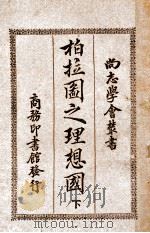 尚志學會叢書
柏拉圖之理想國 下
商務印書館發行